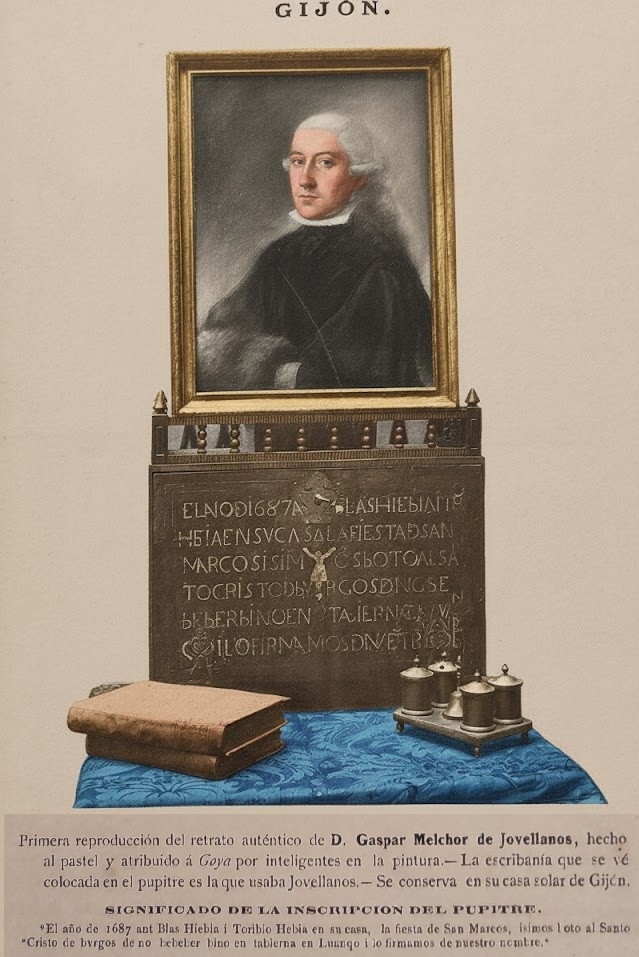 GIJÓN.
ELNODI687A BLASHIEBIAITR
HBIAENSVCASALAFIESTADSAN
MARCOSISIM OSBOTOALSA
TOCRISTODBVRGOSDNOBE
BEBERBINOEN TABIERNA
ILOFIRNAMOSDNVETR
Primera reproducción del retrato auténtico de D. Gaspar Melchor de Jovellanos, hecho
al pastel y atribuido á Goya por inteligentes en la pintura.— La escribanía que se vé
colocada en el pupitre es la que usaba Jovellanos.— Se conserva en su casa solar de Gijón.
SIGNIFICADO DE LA INSCRIPCION DEL PUPITRE.
"El año de 1687 ant Blas Hiebia i Toribio Hebia en su casa, la fiesta de San Marcos, isimos boto al Santo
"Cristo de bvrgos de no bebeber bino en tablerna en Luanqo i lo firmamos de nuestro nombre."